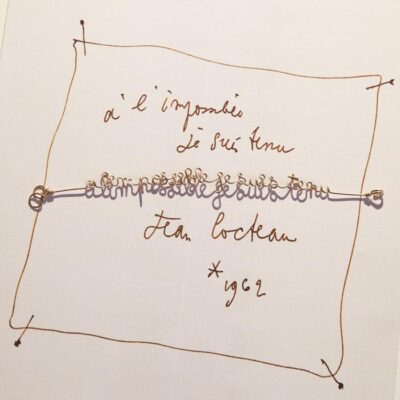 à l'impossible
je suis tenu
à l'impossible je suis tenu
Jean Cocteau
*1962